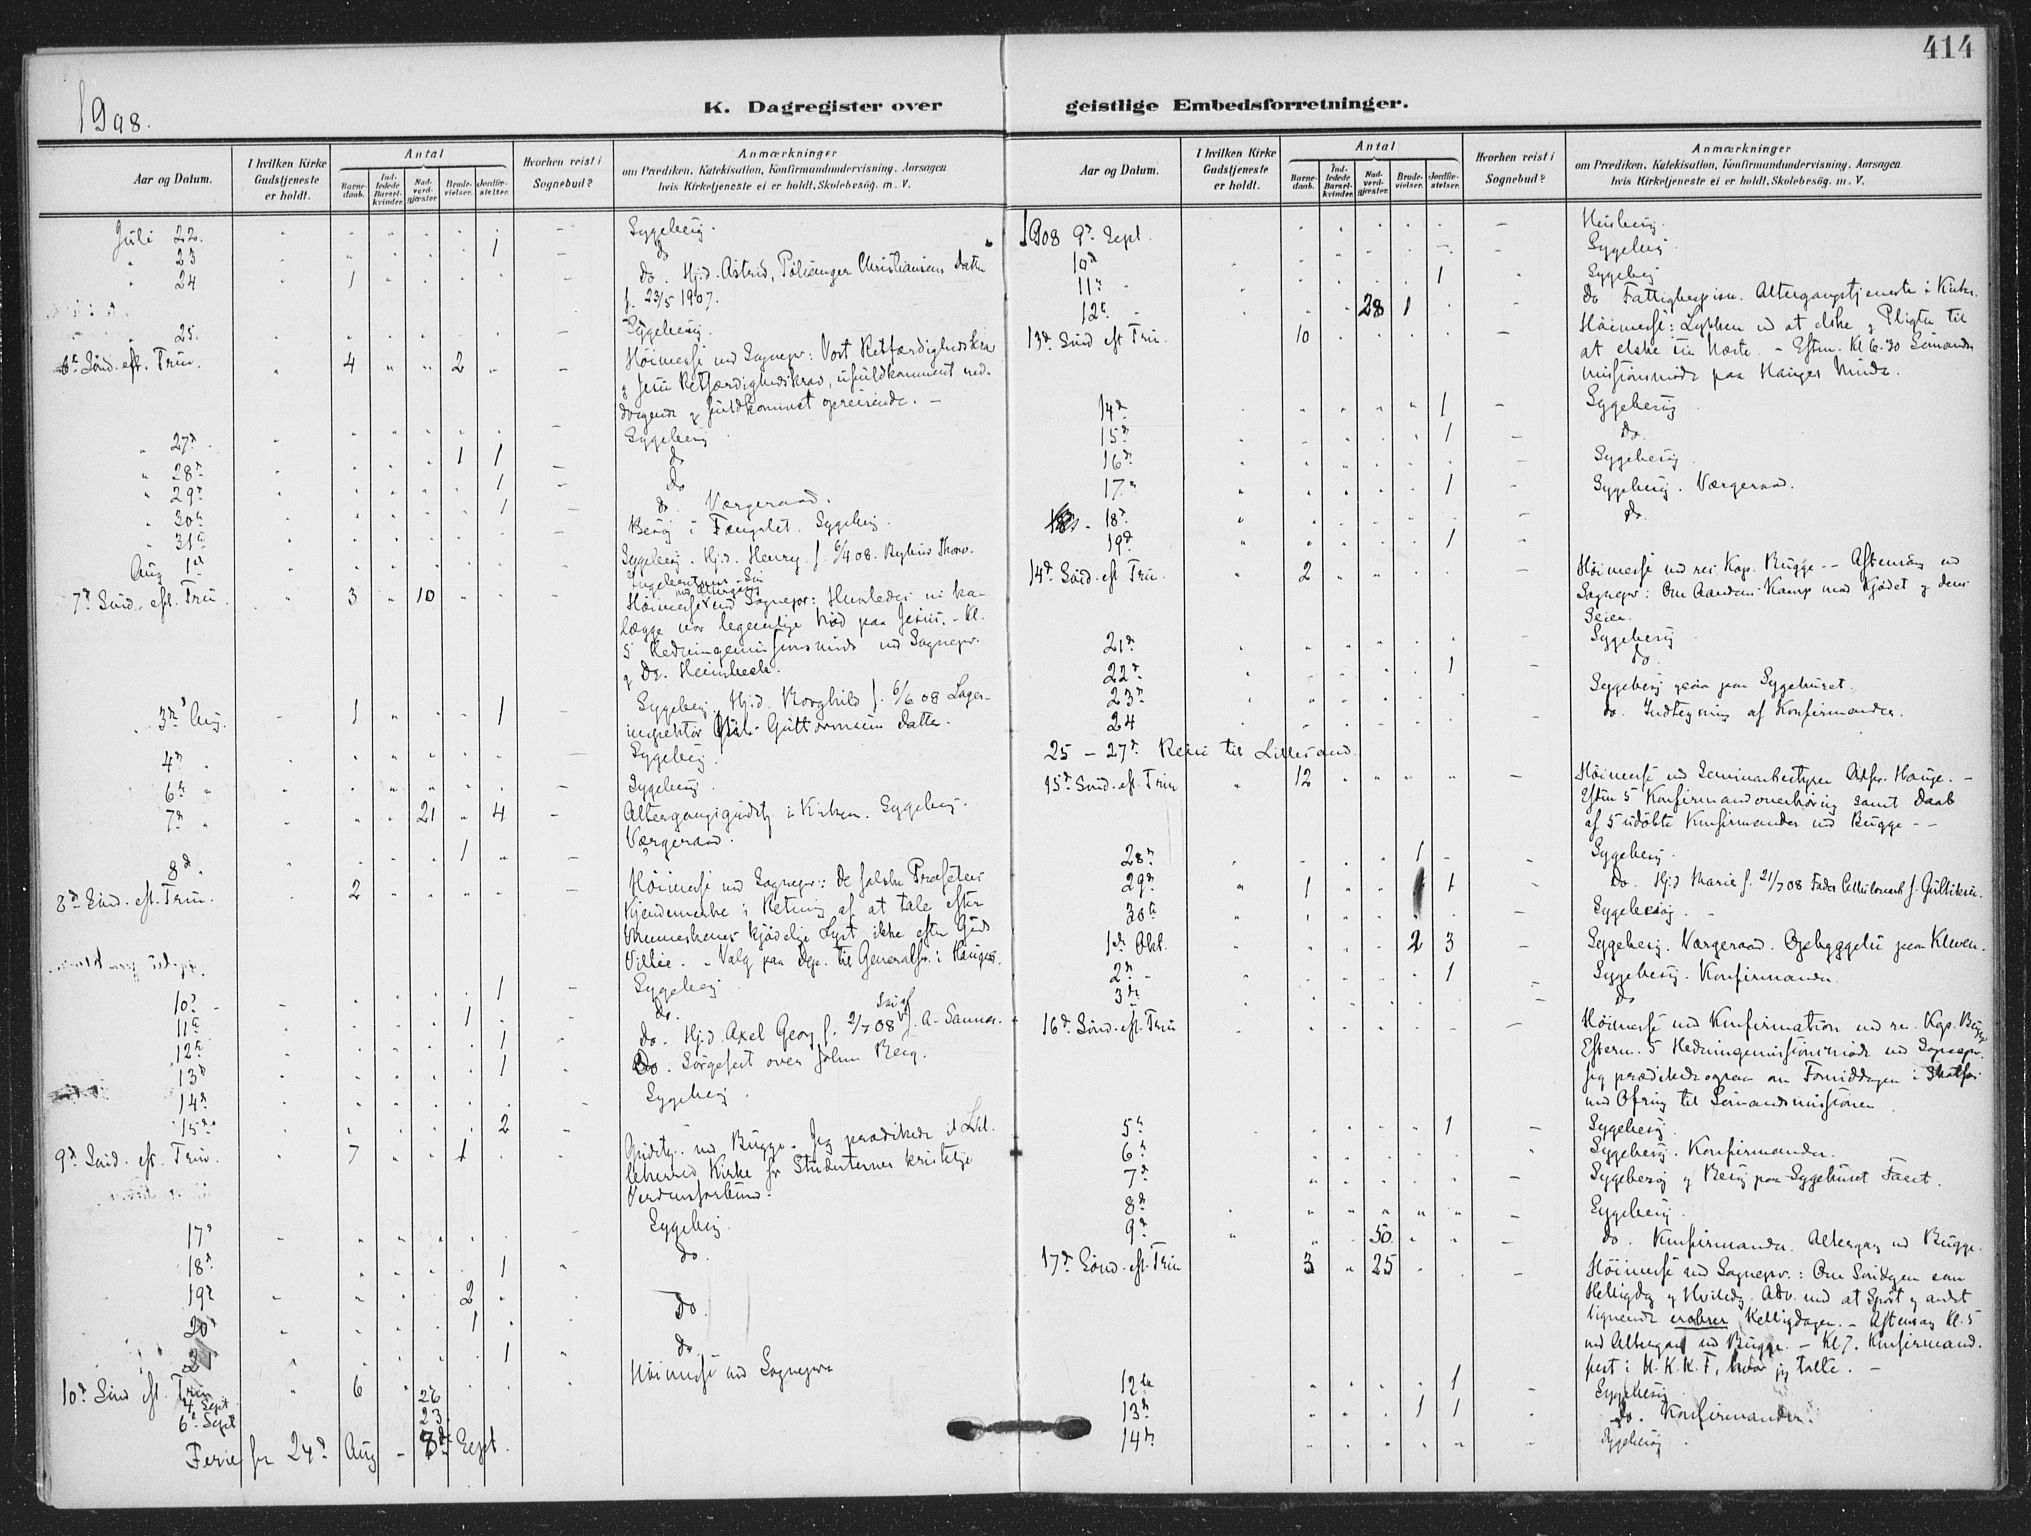 414
1908.
K. Dagregister over
geistlige Embedsforretninger.
Aar og Datum.
I hvilken Kirke
Gudstjeneste
er holdt.
Antal
Barne-
daab.
Ind-
ledede
Barsel-
kvinder.
Nad-
verd-
gjæster.
Brude-
vielser.
Jordfæ-
stelser.
Hvorhen reist i
Sognebud?
Anmærkninger
om Prædiken, Katekisation, Konfirmandundervisning, Aarsagen
hvis Kirketjeneste ei er holdt, Skolebesøg, m. V.
Juli 22. Sygebesøg.
23 1 do
24 1 do. Hj.d. Astrid, Christiansens Datter
f. 23/5 1907.
25. Sygebesøg.
6te Sønd. eft. Trin. 4 2 Høimesse ved Sognepr: Vort Retfærdighedskrav
og Jesu Retfærdighedskrav, ufuldkomment ned-
og fuldkomment opreisende. –
27d Sygebesøg.
28d 1 1 do
29d 1 do
30te 1 do. Værgeraad.
31te Besøg i Fængslet. Sygebesøg.
Aug 1ste Sygebesøg. Hj.d. Henry f. 6/4 08.
7d Sønd. eft. Tri. 3 10 Høimesse ved Sognepr: Hvorledes vi kan
lægge vor legemlige Nød paa Jesus. – Kl.
5 Hedningemissionsmøde ved Sognepr.
3die Aug. 1 1 Sygebesøg. Hj.d. Borghild f. 6/6 08 Lager-
inspektør Guttormsens Datter.
4de Sygebesøg.
6te Sygebesøg.
7de 21 4 Altergangsgudstj. i Kirken. Sygebesøg.
Værgeraad.
8de 1
8d Sønd. eft. Trin. 2 Høimesse ved Sognepr: De falske Profeters
Kjendemærke i Retning af at tale efter
Menneskenes kjødelige Lyst ikke efter Guds
Villie. – Valg paa Dep. til Generalfor. i Hauges.
10de 1 Sygebesøg
11te 1 do.
12te 1 do. Hj.d. Axel Georg f. 2/7 08 Søn af J. A. Sannes.
13de 1 Do. Sørgefest over John Berg.
14de Sygebesøg.
15de 2
9d Sønd. eft. Trin. 7 1 Gudstj. ved Bugge. Jeg prædikede i Lil-
leherred Kirke for Studenternes kristelige
Verdensforbund.
17d Sygebesøg.
18d 1 do.
19d 2 Do.
20d 1 do.
21 1
10d Sønd. eft. Trin 6 26 Høimesse ved Sognepr.
4 Sept
6te Sept 23
Ferie fra 24d Aug – 8de Sept.
Aar og Datum.
I hvilken Kirke
Gudstjeneste
er holdt.
Antal
Barne-
daab.
Ind-
ledede
Barsel-
kvinder.
Nad-
verd-
gjæster.
Brude-
vielser.
Jordfæ-
stelser.
Hvorhen reist i
Sognebud?
Anmærkninger
om Prædiken, Katekisation, Konfirmandundervisning, Aarsagen
hvis Kirketjeneste ei er holdt, Skolebesøg, m. V.
1908 9d Sept. Husbesøg.
10d Sygebesøg
11te 1 Sygebesøg
12te 28 1 do Fattigbespisn. Altergangstjeneste i Kirken.
13d Sønd eft Trin. 10 Høimesse: Lykken ved at elske og Pligten til
at elske sin Næste. – Eftm. Kl 6.30 Sømands-
missionsmøde paa Hauges Minde.
14d 1 Sygebesøg
15d 1 Do.
16d Sygebesøg.
17d 1 Sygebesøg. Værgeraad.
18d do.
19d 1
14d Sønd. eft Trin. 2 Høimesse ved res. Kap. Bugge. – Aftensang ved
Sognepr: Om Aandens Kamp mod Kjødet og dens
Seier.
21d Sygebesøg
22d 1 do.
23d Sygebesøg ogsaa paa Sygehuset.
24 do. Indtegning af Konfirmander.
25 – 27d Reise til Lillesand.
15d Sønd. eft. Trin 12 Høimesse ved Seminarbestyrer Hauge. –
Eftm 5 Konfirmandoverhøring samt Daab
af 5 udøbte Konfirmander ved Bugge – –
28d 1 Sygebesøg.
29d 1 1 Do. Hj.d Marie f. 21/7 08 Fader f. Gulliksen.
30te Sygebesøg.
1ste Okt. 2 3 Sygebesøg. Værgeraad. Opbyggelse paa Kleven.
2d 1 Sygebesøg. Konfirmander.
3die do
16d Sønd. eft. Trin Høimesse med Konfirmation ved res. Kap. Bugge
Efterm. 5 Hedningemissionsmøde ved Sognepr.
Jeg prædikede ogsaa om Formiddagen i
med Ofring til Sømandsmissionen
5te 1 Sygebesøg.
6te Sygebesøg. Konfirmander.
7d Sygebesøg og Besøg paa Sygehuset Faret.
8d Sygebesøg.
9d 50 do. Konfirmander. Altergang ved Bugge.
17d Sønd. eft. Trin 3 25 Høimesse ved Sognepr.: Om Søndagen som
Helligdag og Hviledag. Adv. mod at Sport og andet
lignende erobrer Helligdagen. – Aftensang Kl. 5
med Altergang ved Bugge. – Kl 7. Konfirmand-
fest i H. K. K. F, hvor jeg talte. –
12te 1 Sygebesøg
13d 1 1 do. Konfirmander.
14de Sygebesøg.